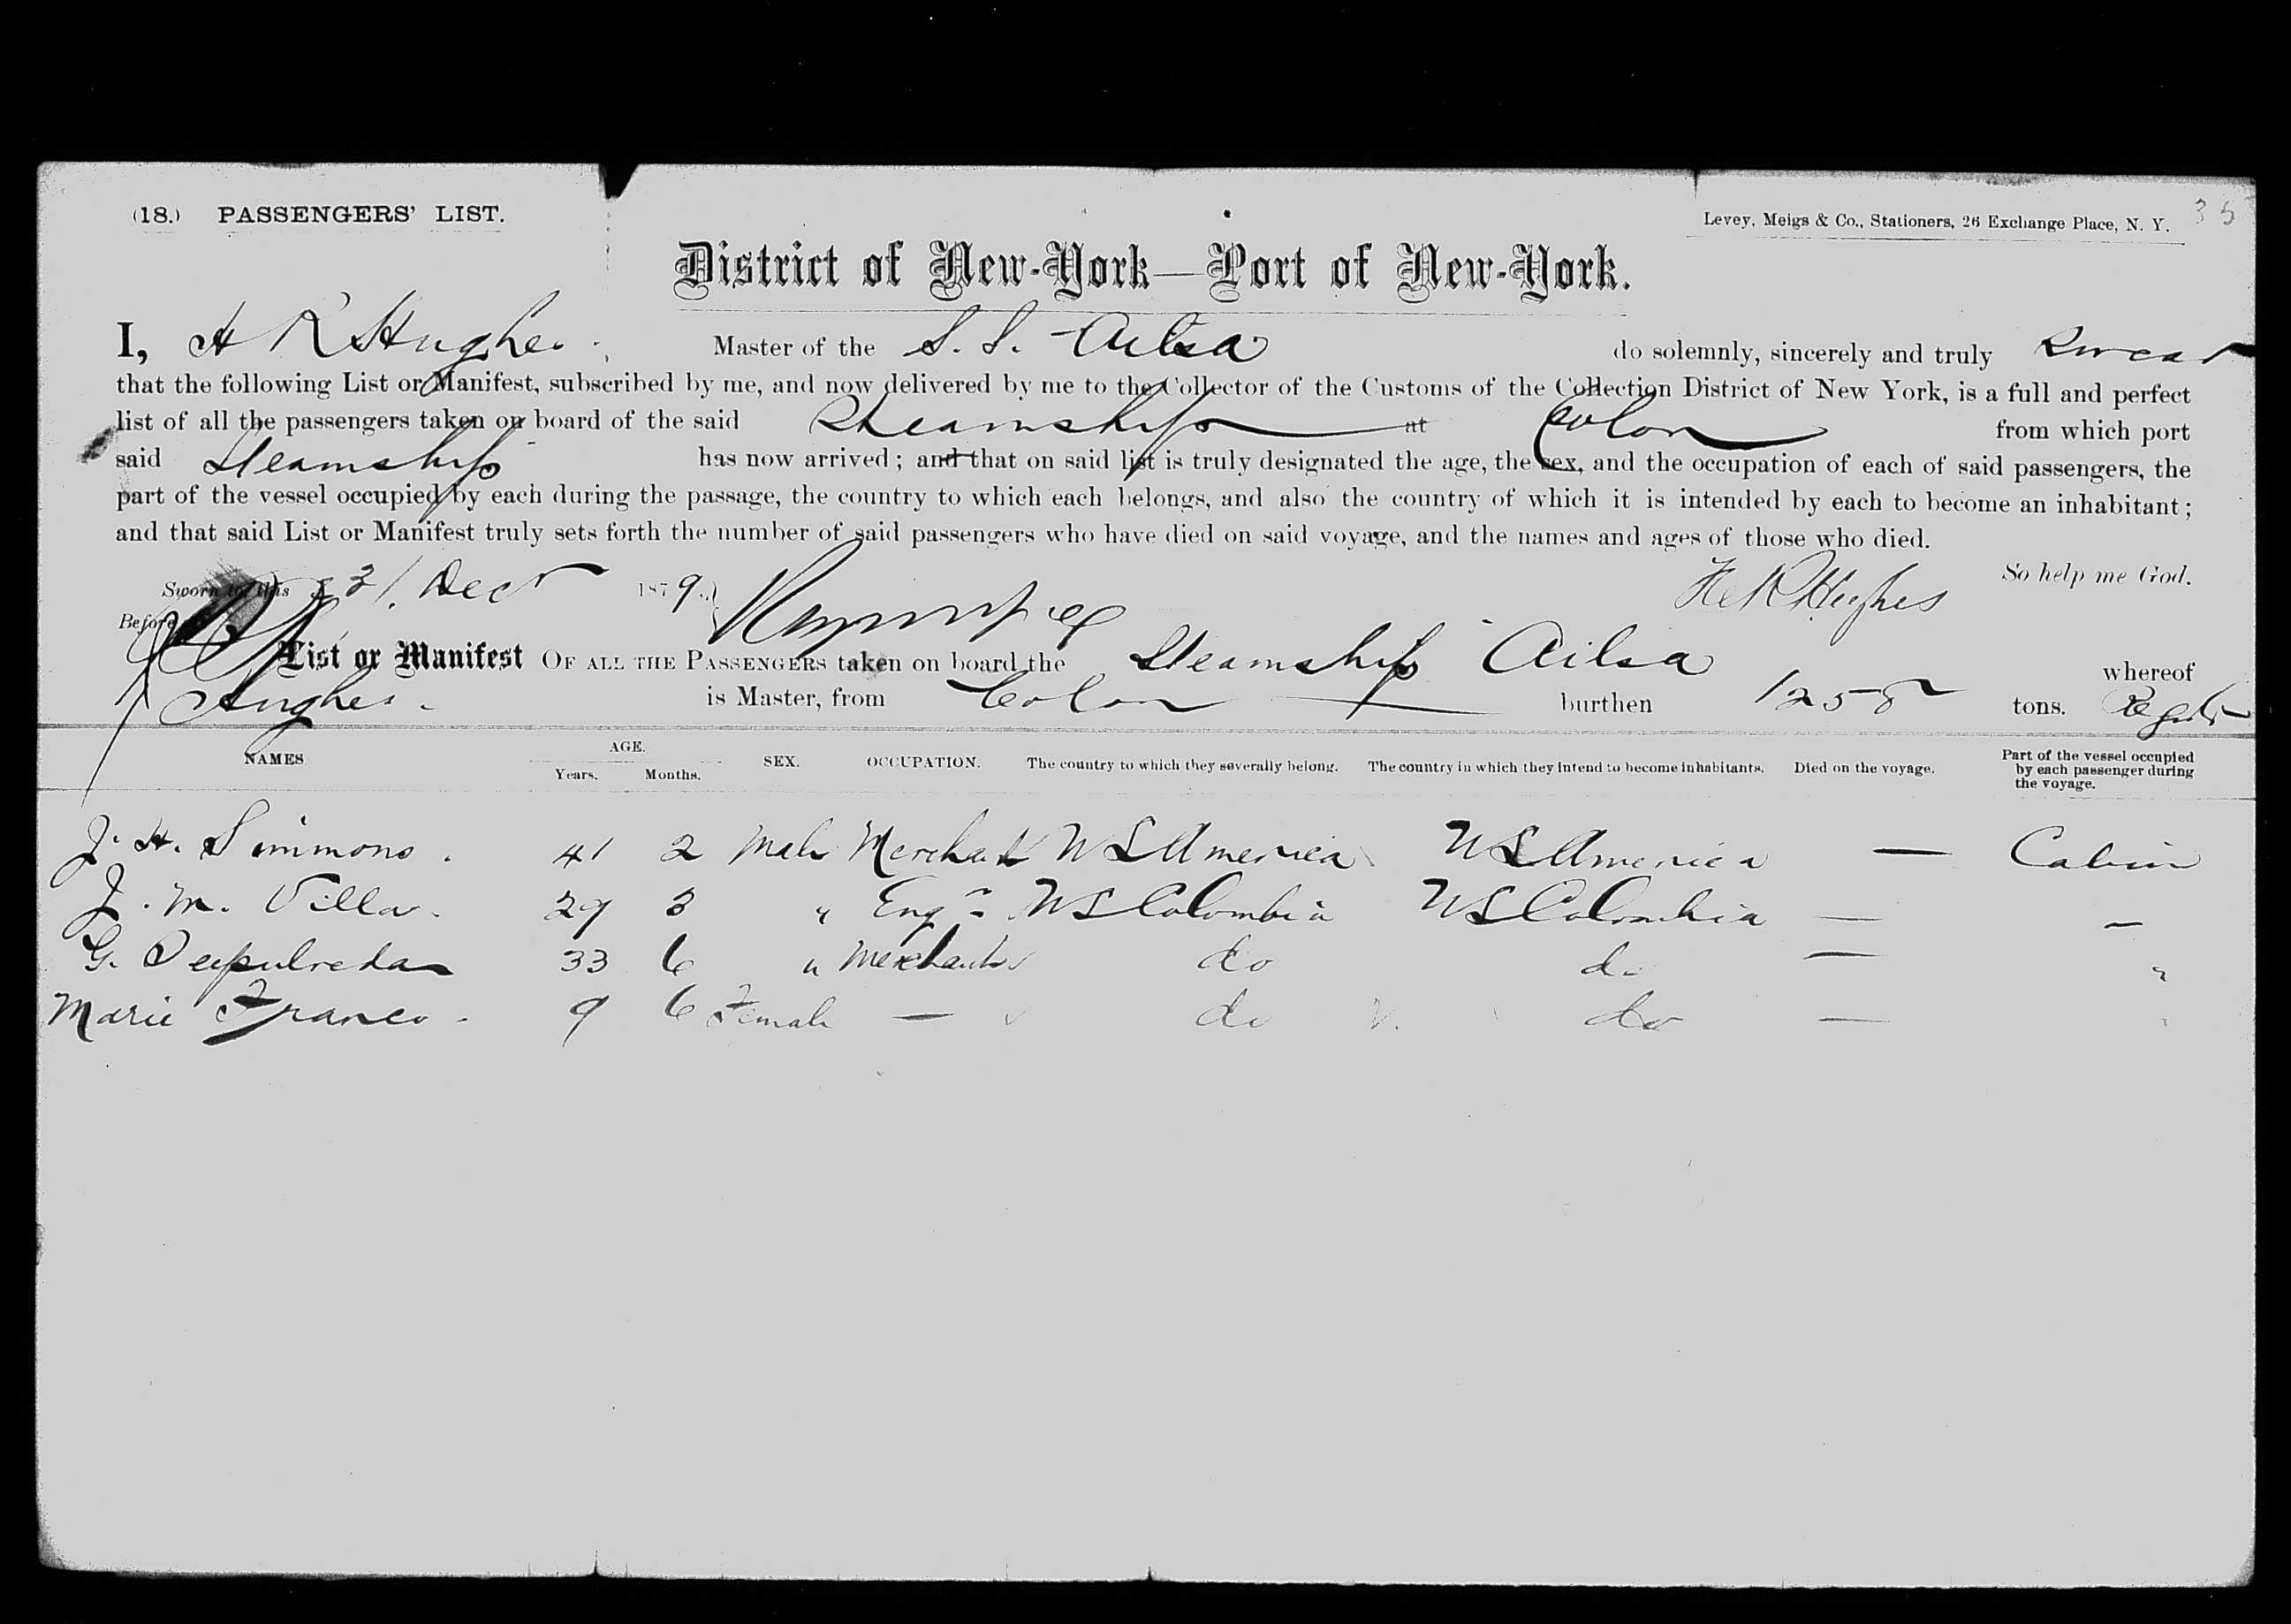 (18.) PASSENGERS' LIST.
Levey, Meigs & Co., Stationers, 26 Exchange Place, N. Y. 35
District of New-York—Port of New-York.
I, H R Hughes Master of the S. S. Ailsa do solemnly, sincerely and truly Swear
that the following List or Manifest, subscribed by me, and now delivered by me to the Collector of the Customs of the Collection District of New York, is a full and perfect
list of all the passengers taken on board of the said Steamship at Colon from which port
said Steamship has now arrived; and that on said list is truly designated the age, the sex, and the occupation of each of said passengers, the
part of the vessel occupied by each during the passage, the country to which each belongs, and also the country of which it is intended by each to become an inhabitant;
and that said List or Manifest truly sets forth the number of said passengers who have died on said voyage, and the names and ages of those who died.
So help me God.
Sworn to this 31. Decr 1879. H R Hughes
Before
List or Manifest OF ALL THE PASSENGERS taken on board the Steamship Ailsa whereof
Hughes. is Master, from Colon burthen 1258 tons. Register
NAMES AGE. Years. Months. SEX. OCCUPATION. The country to which they severally belong. The country in which they intend to become inhabitants. Died on the voyage. Part of the vessel occupied by each passenger during the voyage.
J. H. Simmons. 41 2 Male Merchant US America US America — Cabin
J. M. Villa. 29 3 " Engr US Colombia US Colombia — "
G. Seepulveda 33 6 " Merchant do do — "
Marie Franco. 9 6 Female — do do — "